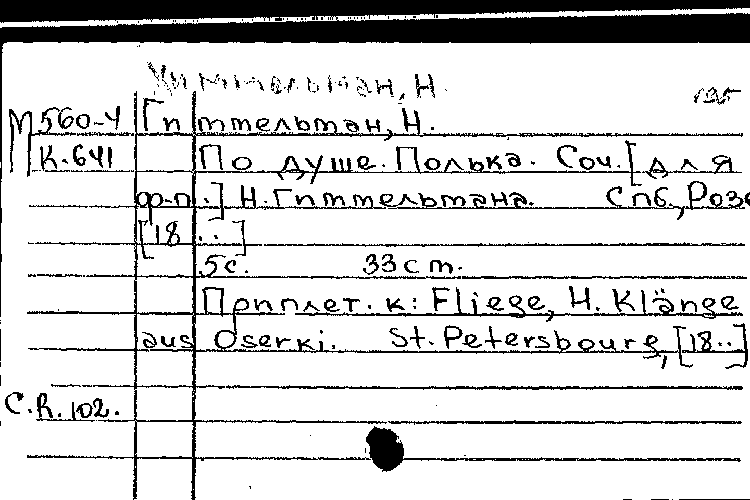 Химмельман, Н.
М 560-4 Гиммельман, Н.
К.641 По душе. Полька. Соч. [для
ф-п.] Н. Гиммельмана. Спб., Розе
[18..]
5 с. 33 см.
Приплет. к: Fliege, H. Klänge
aus Oserki. St. Petersbourg, [18..]
С.К. 102.